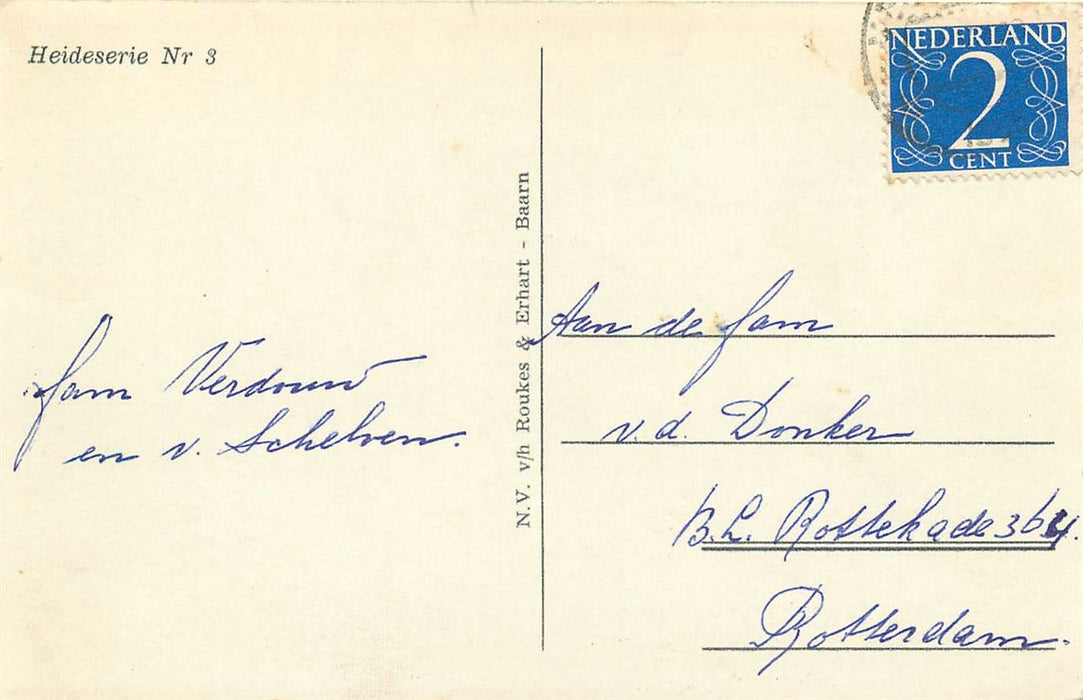 Heideserie Nr 3
NEDERLAND
2
CENT
N.V. v/h Roukes & Erhart - Baarn
Fam Verdouw
en v. Schelven.
Aan de fam
v.d. Donker
B.L. Rottekade
Rotterdam.